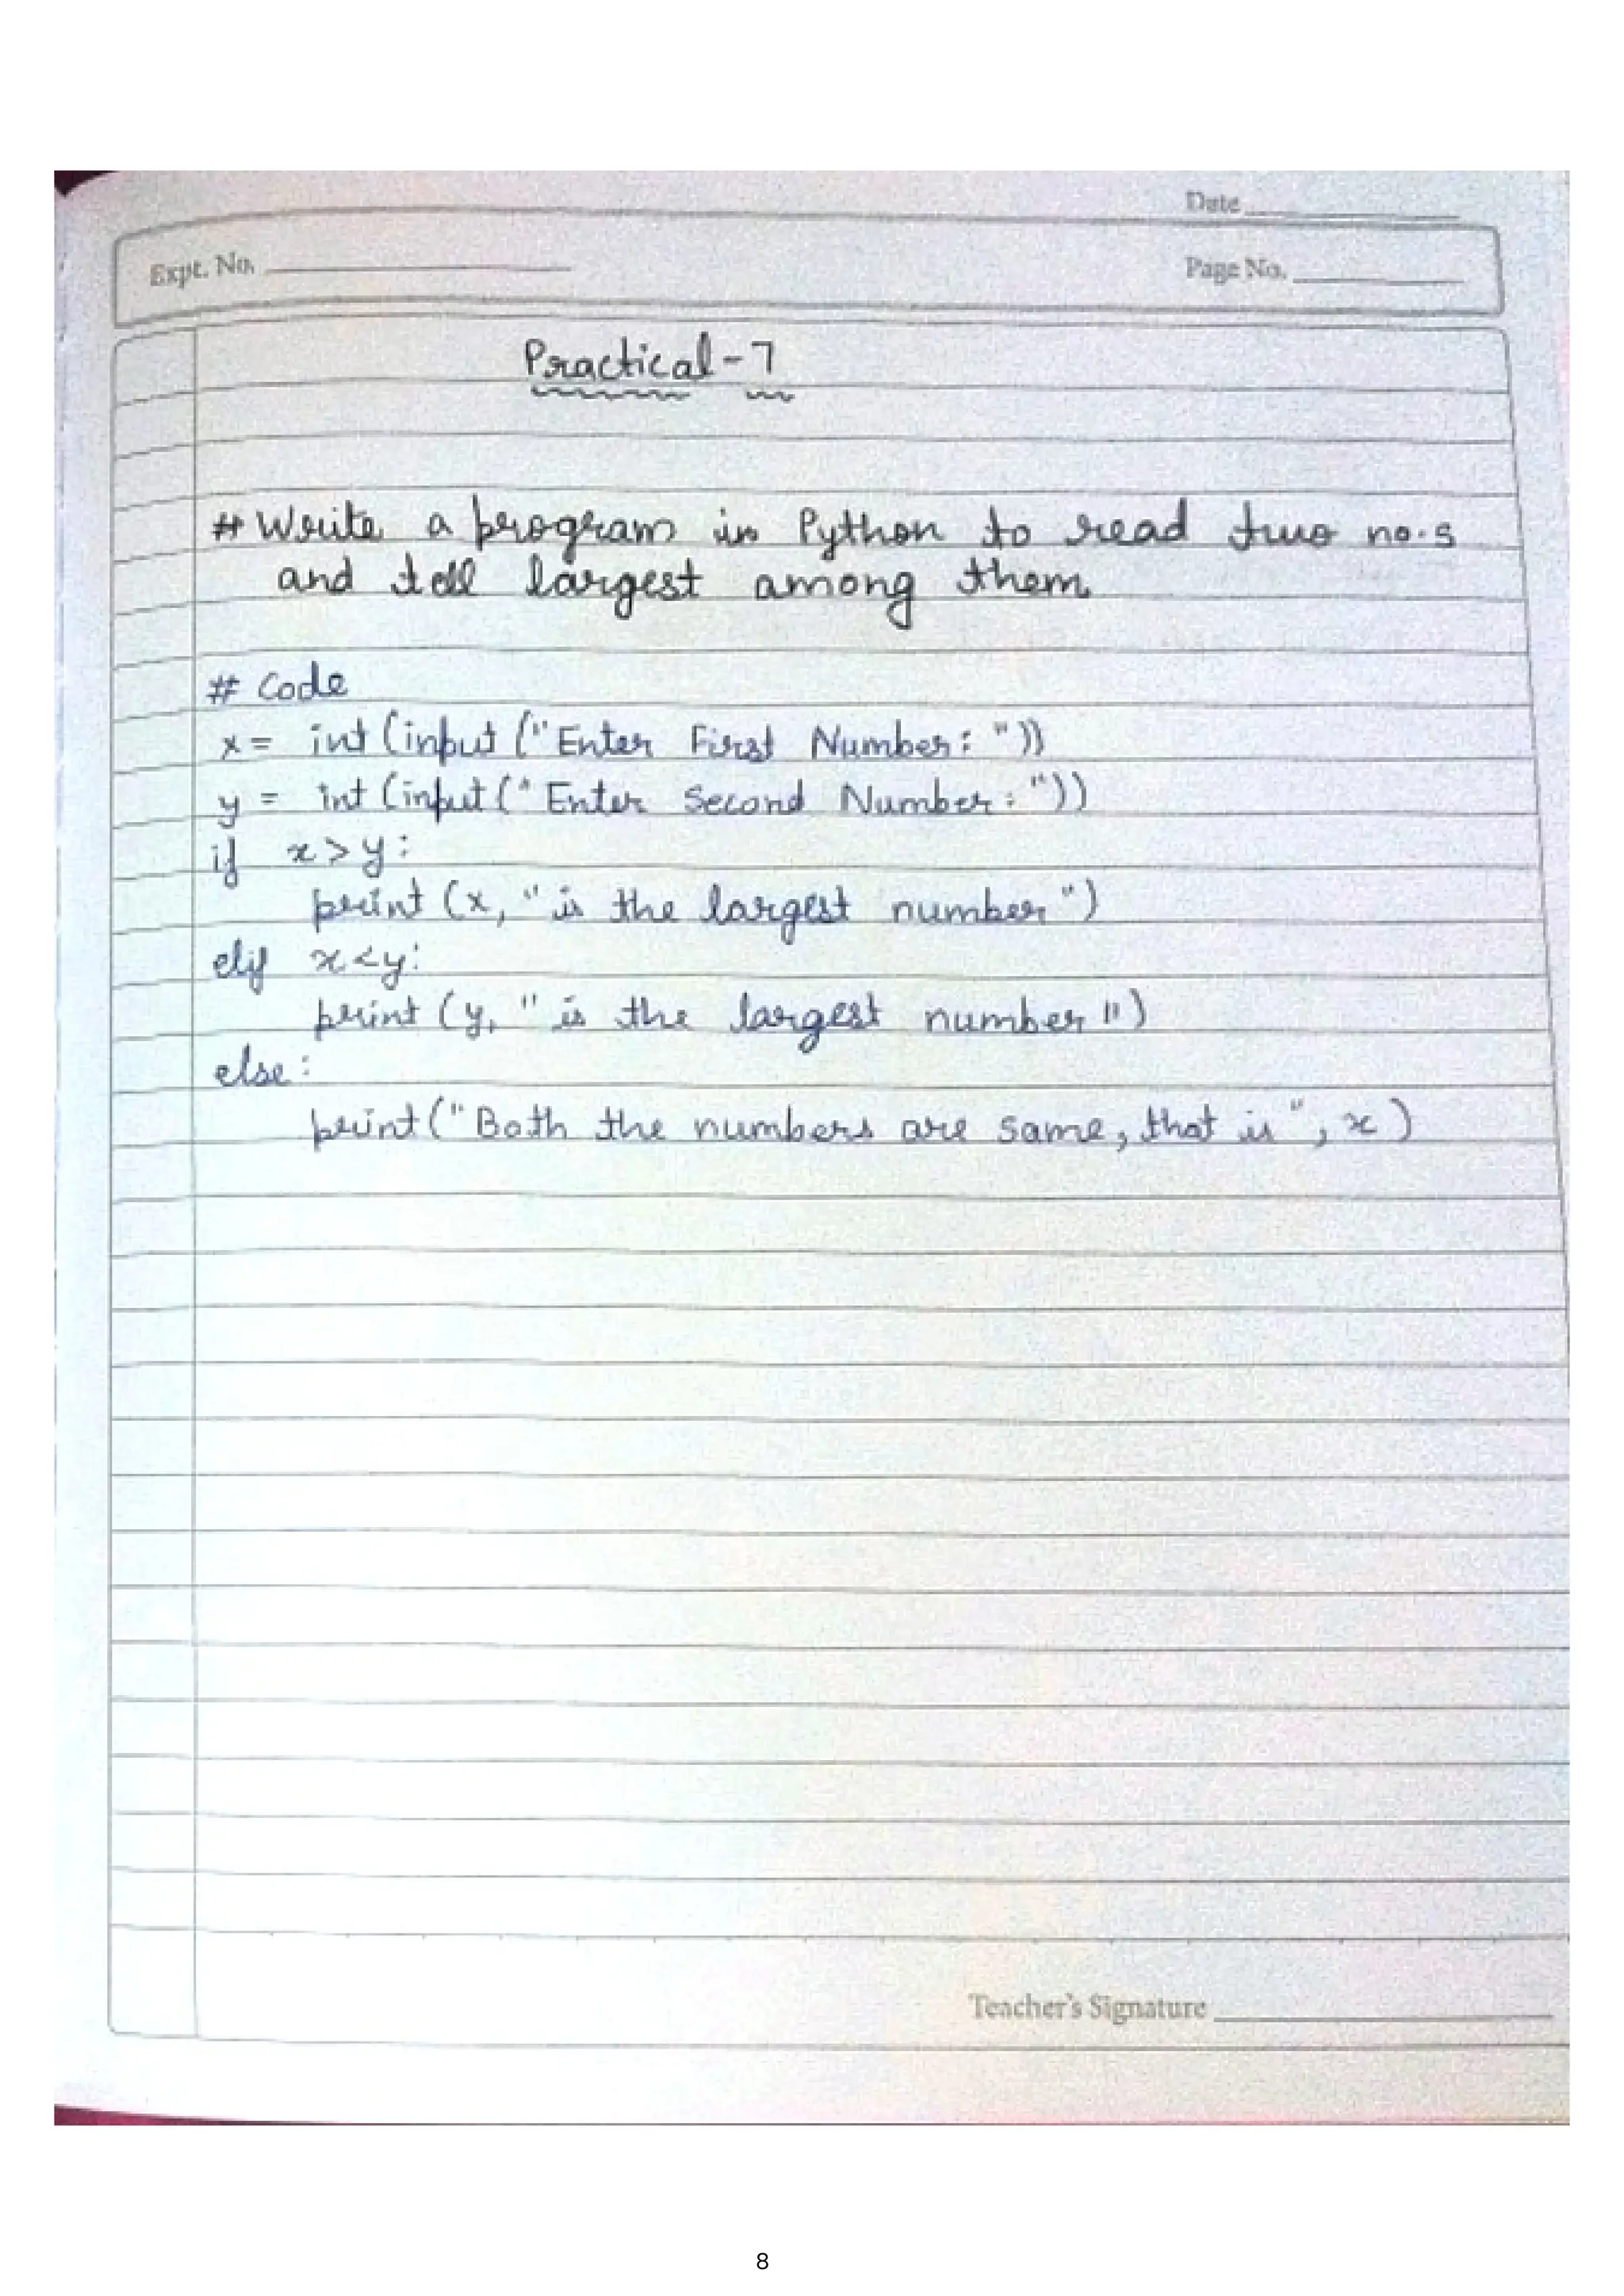 Date
Expt. No.
Page No.
Practical-7
# Write a program in Python to read two no.s
and tell largest among them
# Code
x = int (input ("Enter First Number: "))
y = int (input (" Enter Second Number: "))
if x > y :
print (x, " is the largest number ")
elif x < y:
print (y, " is the largest number ")
else :
print (" Both the numbers are same, that is ", x )
Teacher's Signature
8